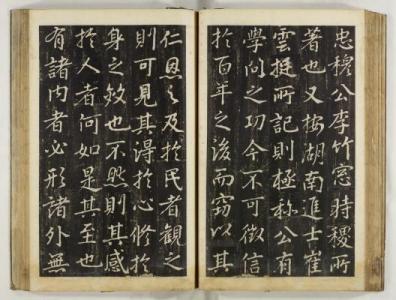 忠穆公李竹窓時稷所
著也又按湖南進士崔
雲挺所記則極称公有
學問之功今不可徵信
於百年之後而窃以其
仁恩之及於民者觀之
則可見其得於心修於
身之效也不然則其感
於人者何如是其至也
有諸内者必形諸外無